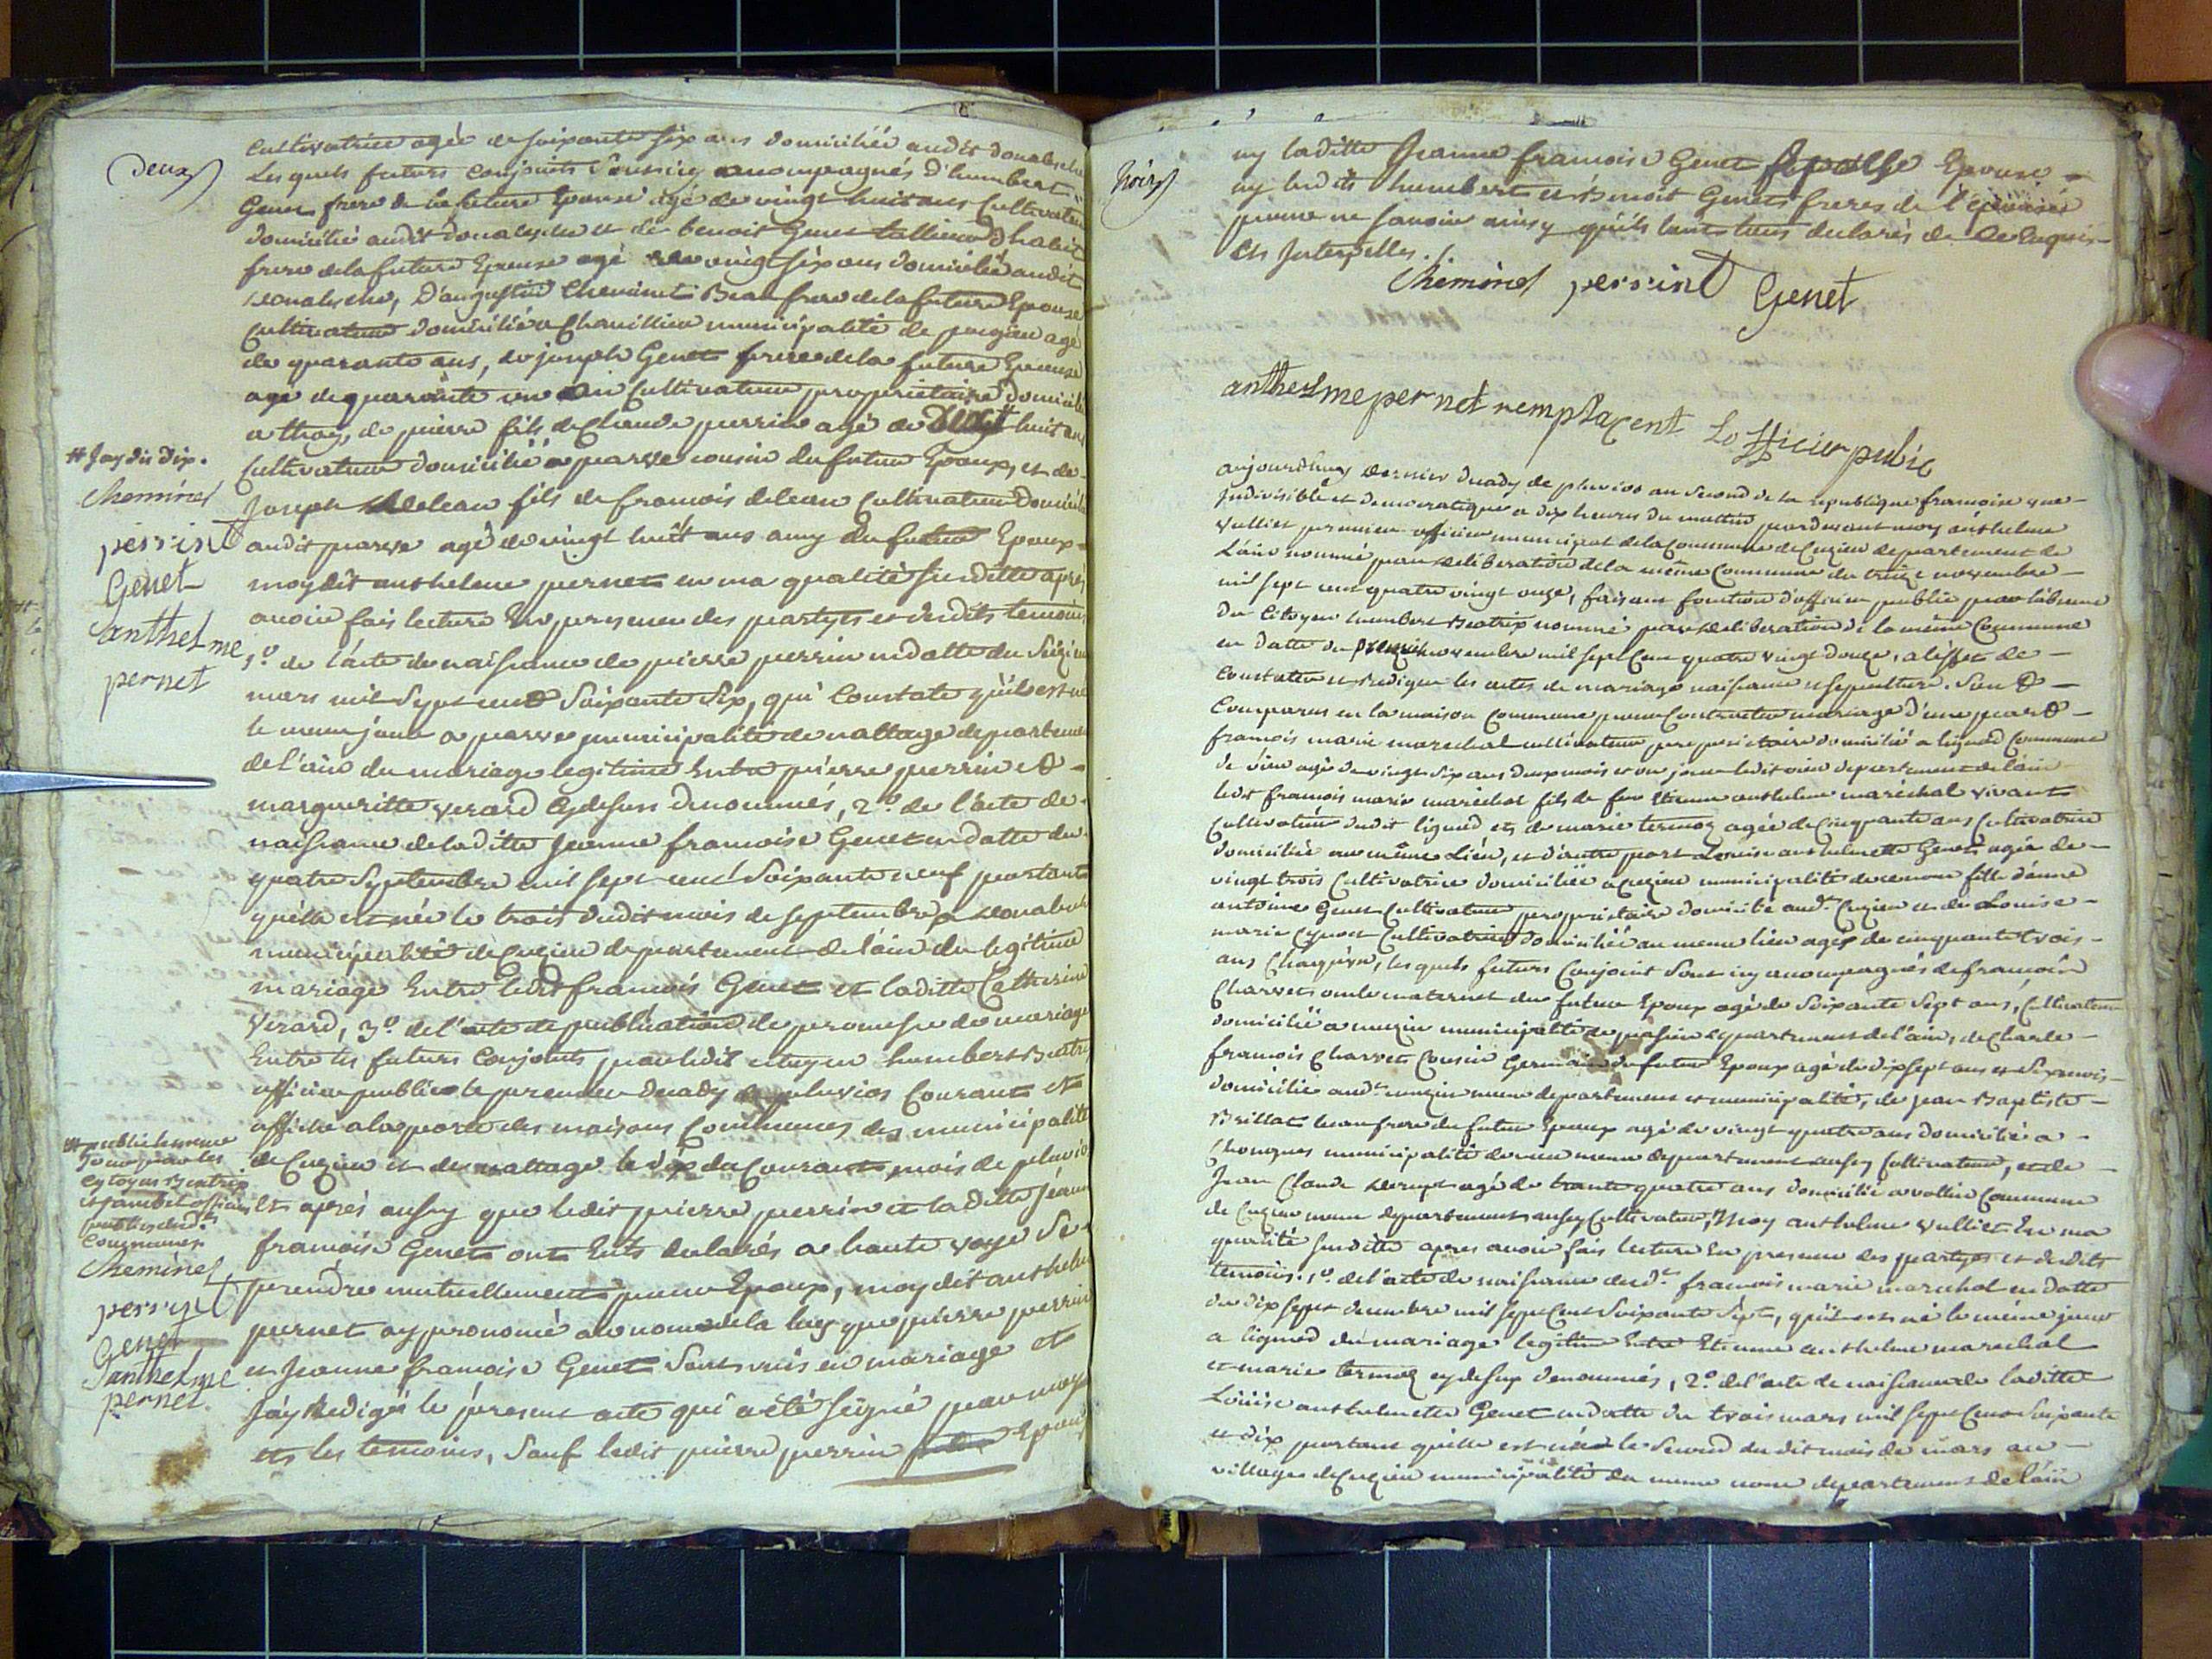 Deux
cultivatrice agée de soixante six ans domiciliée audit
Les quels futurs conjoints sont icy accompagnés d'humbert
Genet frere de la future Epouse agé de vingt huit ans Cultivateur
domicilié audit et de benoit Genet tallieur d'habit
frere de la future Epouse agé de vingt six ans domicilié audit
D'augustin Cheminet Beau frere de la future Epouse
Cultivateur domicilié a Chemillieu municipalité de agé
de quarante ans, de joseph Genet frere de la future Epouse
agé de quarante un an Cultivateur proprietaire domicilié
a thoy, de pierre fils de Claude perrin agé de huit ans
Cultivateur domicilié a parve cousin du futur Epoux, et de
Joseph deleau fils de francois deleau Cultivateur Domicilié
audit parve agé de vingt huit ans amy du futur Epoux
moy dit anthelme pernet en ma qualité susditte après
avoir fais lecture En presence des partyes et desdits temoins
1º de l'acte de naissance de pierre perrin en datte du
mars mil sept cent soixante six, qui constate qu'il est né
le meme jour a parve municipalité de nattage departement
de l'ain du mariage legitime Entre pierre perrin et
margueritte verard cydessus denommés, 2º de l'acte de
naissance de laditte Jeanne francoise Genet en datte du
quatre Septembre mil sept cent soixante neuf portant
qu'elle est née le trois dudit mois de septembre a
municipalité de Cuzieu departement de l'ain du legitime
mariage Entre ledit francois Genet et laditte Catherine
Verard, 3º de l'acte de publication de promesse de mariage
Entre les futurs conjoints par ledit citoyen humbert Beatrix
officier public le premier decady de pluvios Courant et
affiché a la porte des maisons Communes des municipalités
de Cuzieu et de nattage le dix du Courant mois de pluvios
Et aprés aussy que ledit pierre perrin et laditte Jeanne
francoise Genet ont Euts declarés a haute voye se
prendre mutuellement pour Epoux, moy dit anthelme
pernet ay prononcé au nom de la loy que pierre perrin
et Jeanne francoise Genet sont unis en mariage et
J'ay Redigé le présent acte qui a été signé par moy
et les temoins, sauf ledit pierre perrin Epoux
# Jay dis dix.
Cheminet
perrint
Genet
anthelme
pernet
## public meme
jour par les
cytoyens Beatrix
et jambet officiers
publics desdits
Communes
Cheminet
perrint
Genet
anthelme
pernet.
trois
ny laditte Jeanne francoise Genet Epouse
ny lesdits humbert et Benoit Genets freres de l'épouse
pour ne savoir ainsy qu'ils l'ont tous declarés de ce Enquis
Et Interpelles./.
Cheminet perrint Genet
anthesme pernet remplacent Lofficier public
aujourdhuy dernier decady de pluvios an second de la republique francoise une
Indivisible et democratique a dix heures du mattin pardevant moy anthelme
Vulliet premier officier municipal de la Commune de Cuzieu departement de
L'ain nommé par deliberation de la même Commune du treize novembre
mil sept cent quatre vingt onze, faisant fonction d'officier public par labsence
du Citoyen humbert Beatrix nommé par deliberation de la même Commune
en datte du novembre mil sept Cent quatre vingt douze, a leffet de
Constater et Rediger les actes de mariage naissance et sepulture. Sont
Comparus en la maison Commune pour Contracter mariage d'une part
francois marie marechal cultivateur proprietaire domicilié a lignod Commune
de vieu agé de vingt six ans deux mois et un jour ledit vieu departement de lain
ledit francois marie maréchal fils de feu Etienne anthelme maréchal vivant
Cultivateur dudit lignod et de marie termoz agée de Cinquante ans Cultivatrice
domiciliée au même Lieu, et d'autre part Louise anthelmette Genet agée de
vingt trois Cultivatrice domiciliée a Cuzieu municipalité de ce nom fille d'anne
antoine Genet Cultivateur proprietaire domicilié aud.t Cuzieu et de Louise
marie Cyvoct Cultivatrice domiciliée au meme lieu agés de cinquante trois
ans Chaqu'un, les quels futurs Conjoint sont icy accompagnés de francois
Charvet oncle maternel du futur Epoux agé de soixante sept ans, Cultivateur
domicilié a muzin municipalité de departement de l'ain, de Charle
francois Charvet Cousin Germain du futur Epoux agé de dix sept ans et six mois
domicilié aud.t muzin meme departement et municipalité, de Jean Baptiste
Brillat beau frere du futur Epoux agé de vingt quatre ans domicilié a
Chongnes municipalité de vieu meme departement aussy Cultivateur, et de
Jean Claude agé de trante quatre ans domicilié a vollien Commune
de Cuzieu meme departement aussy Cultivateur, moy anthelme Vulliet En ma
qualité susditte apres avoir fais lecture En presence des partyes et desdits
temoins. 1º de l'acte de naissance dud.t francois marie marechal en datte
du dix sept decembre mil sept Cent soixante sept, qu'il est né le même jour
a lignod du mariage legitime Entre Etienne anthelme marechal
et marie termoz cydessus denommés, 2º de l'acte de naissance de laditte
Louise anthelmette Genet en datte du trois mars mil sept Cent soixante
et dix portant qu'elle est née le second dudit mois de mars au
village de Cuzieu municipalité du meme nom departement de l'ain